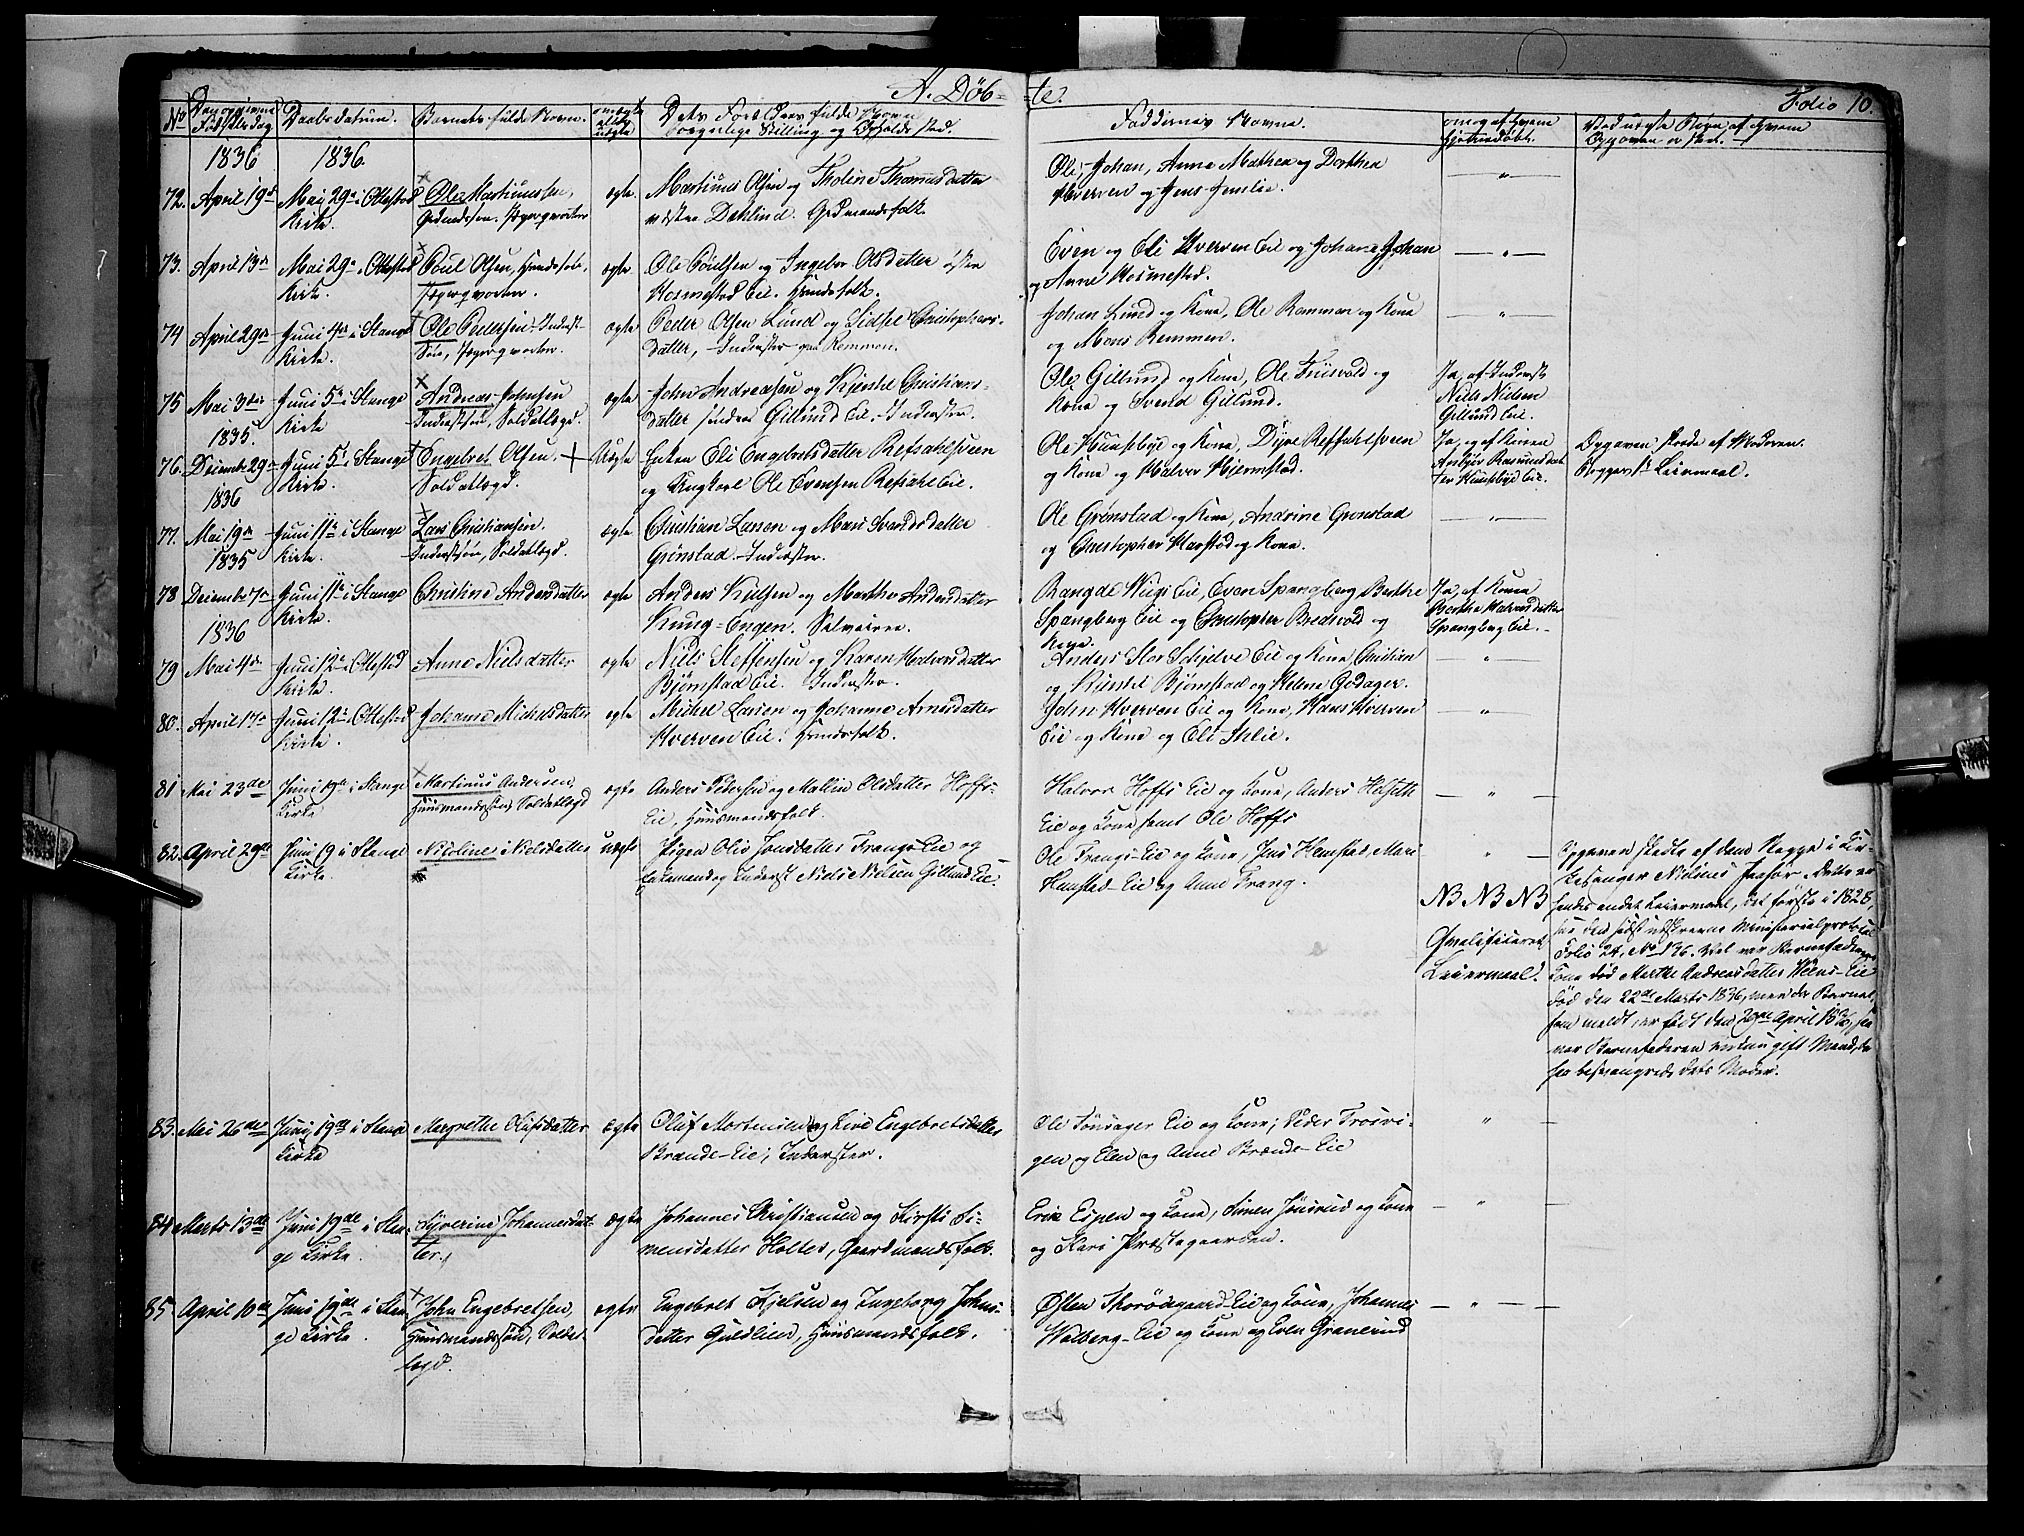 A. Döb- te. Folio 10.
No Den opgivne Fødselsdag Daabsdatum. Barnets fulde Navn. ægte eller uægte
Faddernes Navne.
1836 1836
72. April 19de Mai 29de i Ottestad Kirke. Ole Martinussen, ægte. Martinus Olsen og Tholine Thomasdatter
Dahlind. Gaardmandsfolk.
Ole, Johan, Anne Mathea og Dorthea
Hverven og Jens Jemlie.
73. April 13de Mai 29de i Ottestad Kirke. Poul Olsen, ægte Ole Poulsen og Ingebor Olsdatter
Hosmestad Eie. Huusfolk.
Even og Eli Hverven Eie og Johane, Johan
og Anne Hosmestad.
74 April 29de Juni 4de i Stange Kirke. Ole Pedersen ægte Peder Olsen Lund og Sidsel Christophers-
datter, Inderster paa Remmen.
Johan Lund og Kone, Ole Remmen og Kone
og Mons Remmen.
75 Mai 3die Juni 5te i Stange Kirke Andreas Johnsen
Inderstsøn, Soldatlægd. ægte John Andreasen og Kjersti Christians-
datter søndre Gillund Eie. Inderster.
Ole Gillund og Kone, Ole Friisvold og
Kone og Svend Gillund.
Ja, af Inderst
Niels Nielsen
Gillund Eie.
1835.
76. Decembr 29de Juni 5te i Stange Kirke. Engebret Olsen.
Soldatlægd. Uægte Enken Eli Engebretsdatter
og Ungkarl Ole Evensen
Ole Huusebye og Kone,
og Kone og Halvor Hjermstad.
Ja, og af Konen
Opgaven skede af Moderen.
Begges 1ste Leiermaal.
1836
77. Mai 19de Juni 11te i Stange Kirke. Lars Christiansen.
Inderstsøn, Soldatlægd. ægte Christian Larsen og Mari Svendsdatter
Grønstad. Inderster.
Ole Grønstad og Kone, Andrine Grønstad
og Christopher Harstad og Kone.
1835
78 Decembr 7de Juni 11te i Stange Kirke. Christine Andersdatter ægte Anders Kielsen og Marthe Andersdatter
Engen. Selveiere.
Eie, Even Spangberg Berthe
Spangberg Eie og Christopher Bredvold og
Kone.
Ja, af Konen
Berthe Halvorsdatter
Spangberg Eie.
1836
79 Mai 4de Juni 12te i Ottestad Kirke. Anne Nielsdatter ægte Niels Steffensen og Karen Halvorsdatter
Bjørnstad Eie. Inderster.
Anders Stor Schjelve Eie og Kone, Christian
og Kjersti Bjørnstad og Helene Godager.
80. April 17de Juni 12te i Ottestad Kirke. Johanne Michelsdatter ægte Michel Larsen og Johanne Arnesdatter
Hverven Eie. Huusfolk.
John Hverven Eie og Kone, Hans Hverven
Eie og Kone og Eli Ihlie.
81 Mai 23de Juni 19de i Stange Kirke Martinus Andersen,
Huusmandssøn, Soldatlægd ægte Anders Pedersen og Mallin Olsdatter Hoffs-
Eie, Huusmandsfolk.
Halvor Hoffs Eie og Kone, Anders Helseth
Eie og Kone samt Ole Hoffs
82. April 29de Juni 19 i Stange Kirke. Nicoline Nielsdatter uægte Pigen Olia Jonsdatter Frangs Eie og
Enkemand og Inderst Niels Nielsen Gillund Eie.
Ole Frangs-Eie og Kone, Jens Hemstad, Mari
Hemstad-Eie og Anne Frang.
NB NB NB
Qvalificeret
Leiermaal.
Opgaven skedte af dem Begge i Kir-
kesanger
hendes andet Leiermaal, det første i 1828,
Folio 24, No 136. Vel var Barnefaderens
Kone død Marthe Andreasdatter Heens-Eie
død den 22de Marts 1836, men da Barnet,
som meldt, er født den 29de April 1836, saa
var Barnefaderen endnu gift Mand, da
han besvangrede dets Moder.
83. Mai 26de Juni 19de i Stange Kirke Margrethe Olufsdatter ægte Oluf Mortensen og Live Engebretsdatter
Brænde-Eie, Inderster.
Ole Sønsager Eie og Kone, Peder Frosvi-
gen og Elen og Anne Brænde-Eie
84 Marts 13de Juni 19de i Stan-
ge Kirke. Syverine Johannesdat-
ter. ægte Johannes Christiansen og Kirsti Si-
mensdatter Holtes, Gaardmandsfolk.
Erik Espen og Kone, Simen Jønsrud og Kone
og Kari Præstegaarden.
85. April 10de Juni 19de i Stan-
ge Kirke. John Engebretsen,
Huusmandssøn, Soldat-
lægd. ægte Engebret Kjelsen og Ingeborg Johns-
datter Guldlien, Huusmandsfolk.
Østen Thorødegaard-Eie og Kone, Johannes
Walberg-Eie og Kone og Even Granerud